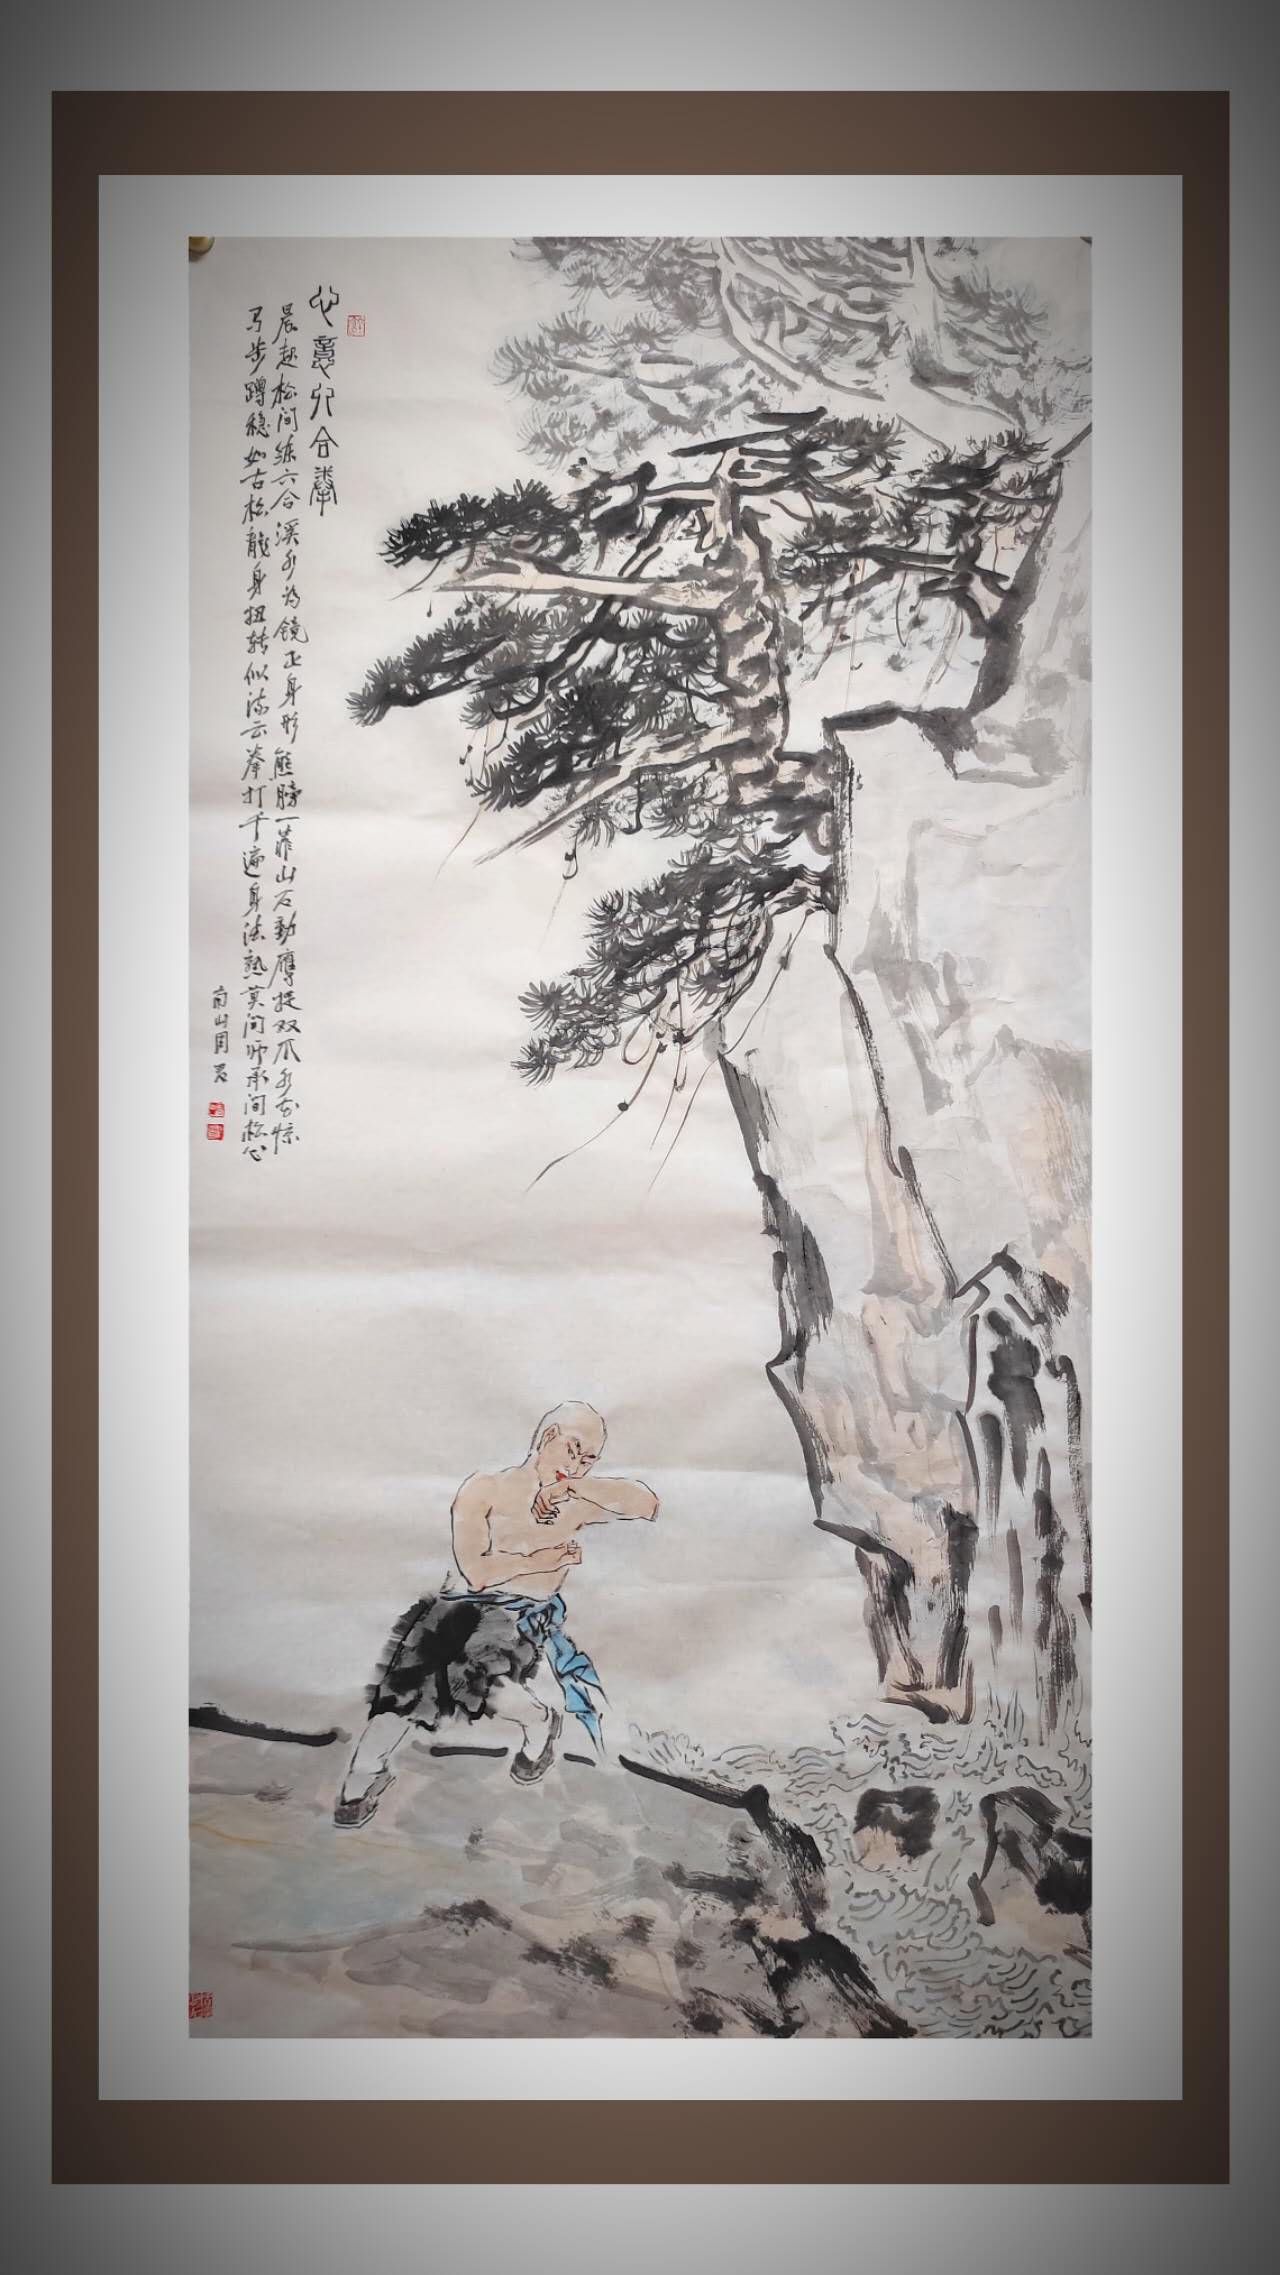 心意六合拳
晨起松间练六合溪水为镜正身形熊膀一靠山石動鹰捉双爪水花惊
马步蹲稳如古松龍身扭转似流云拳打千遍身法熟莫问师承问松心
南山周